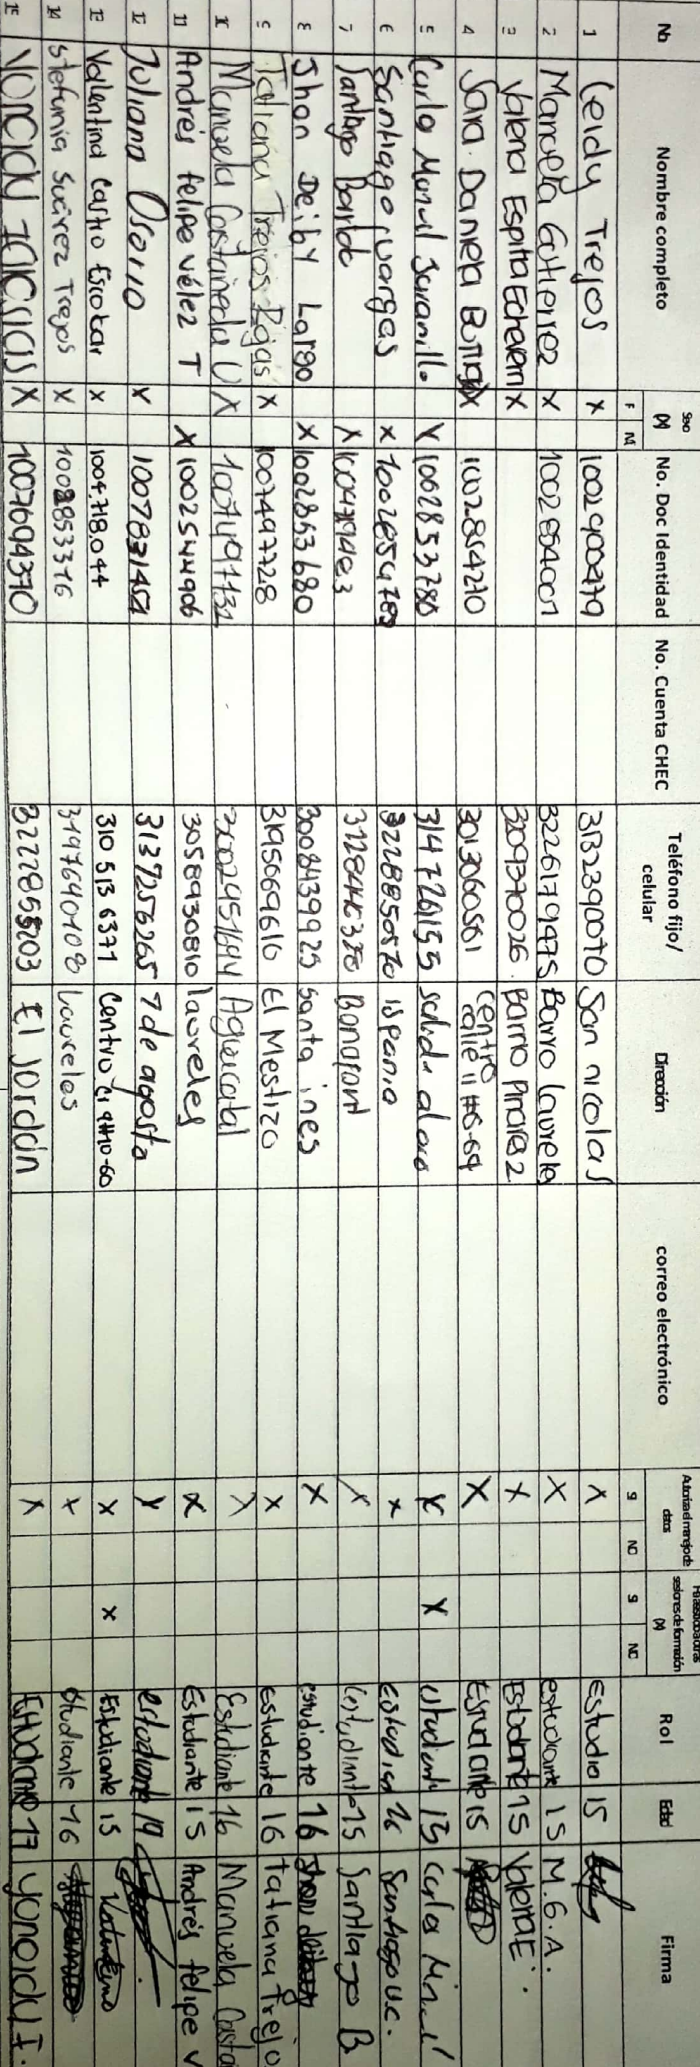 No Nombre completo Sexo (X) F M No. Doc Identidad No. Cuenta CHEC Teléfono fijo/ celular Dirección correo electrónico datos SI NO sesiones de formación (X) SI NO Rol Edad Firma
1 Leidy Trejos X 1002900479 3132390070 San nicolas X Estudio 15
2 Manuela Gutierrez X 1002854001 3226179475 Barrio laureles X estudiante 15 M.G.A.
3 Valeria Espitia Echeverri X 3209370026 Barrio Pinares 2 X Estudiante 15 ValeriaE.
4 Sara Daniela X 1002854270 3013060501 centro calle 11 #6-69 X Estudiante 15
5 Manuel Jaramillo X 1002853780 3147261355 X X estudiante 15
6 Santiago vargas X 1002854789 3228850570 ispania X 16 Santiago v.c.
7 Santiago X Bonafont X estudiante 15 Santiago B
8 Jhon Deiby Largo X 1002853680 3008439925 santa ines X estudiante 16
9 Tatiana Trejos Rojas X 1007497728 3195669610 El Mestizo X estudiante 16 Tatiana Trejo
10 Manuela Castañeda U X 1007497732 3002951694 Aguacatal X Estudiante 16 Manuela Casta
11 Andrés felipe vélez T X 1002544906 3058930810 laureles X Estudiante 15 Andrés felipe v
12 Juliana Osorio X 1007831451 3137256265 7 de agosto X estudiante 19
13 Valentina Castro Escobar X 1004.718.044 310 513 6371 Centro X X Estudiante 15
14 Stefania Suárez Trejos X 1002853376 3197640108 Laureles X estudiante 16
15 X 1007694370 3222855203 El Jordán X Estudiante 17